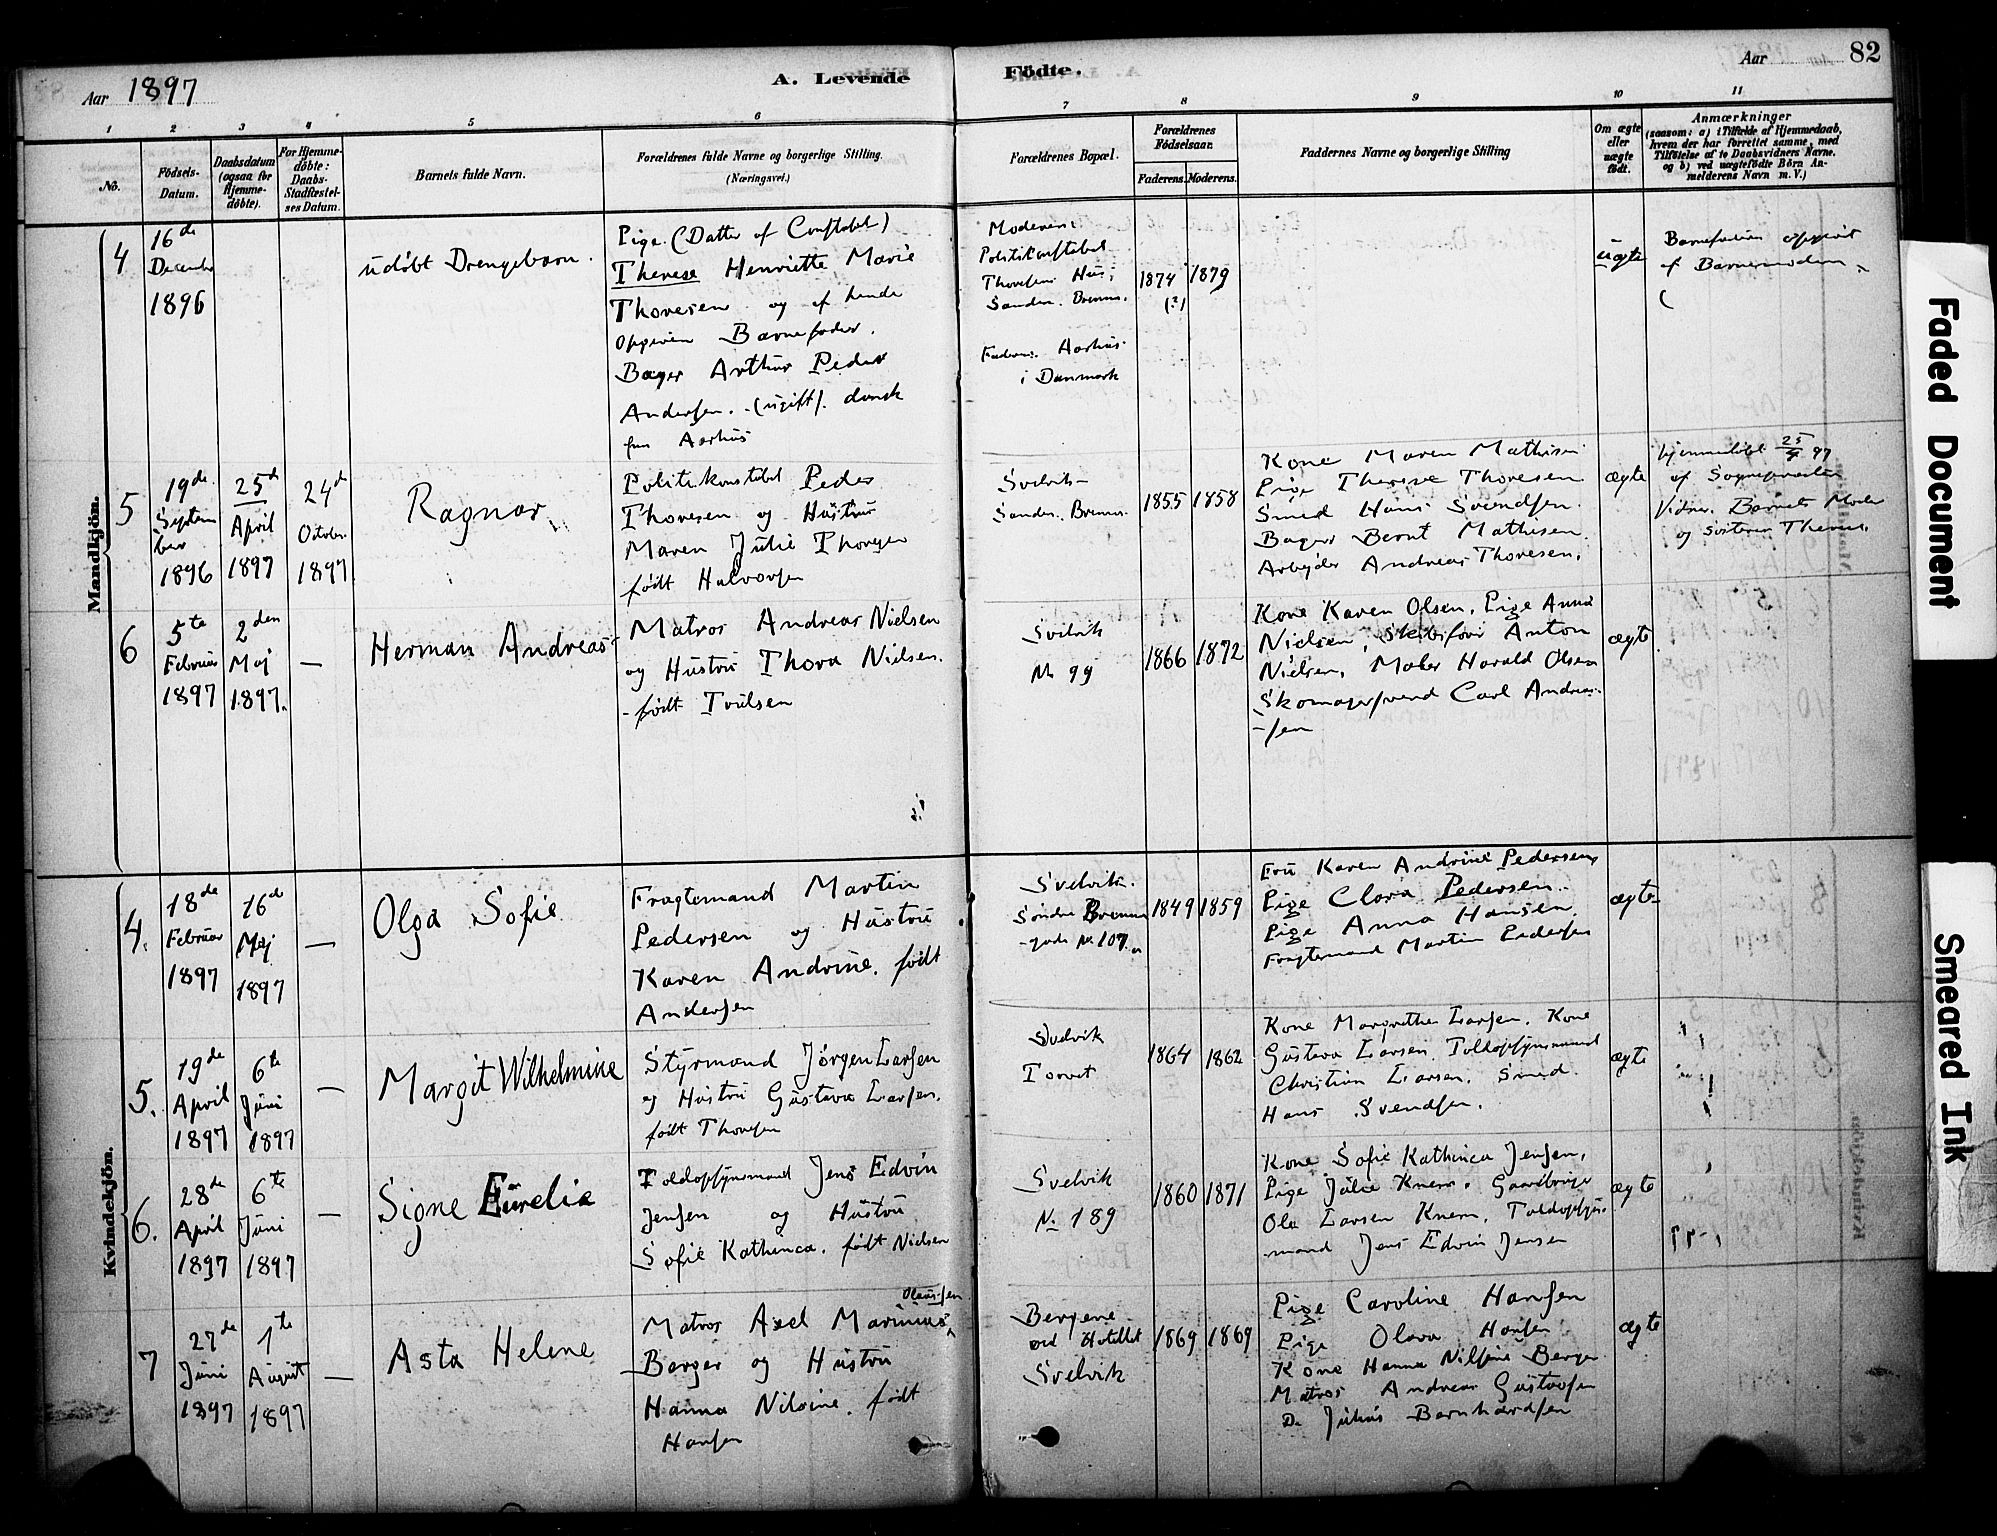 Aar 1897
A. Levende
Fødte.
Aar
82
1
2
3
4
5
6
7
8
9
10
11
No.
Fødsels-
Datum.
Daabsdatum
(ogsaa for
Hjemme-
døbte).
For Hjemme-
døbte:
Daabs-
Stadfæstel-
ses Datum.
Barnets fulde Navn.
Forældrenes fulde Navne og borgerlige Stilling.
(Næringsvei.)
Forældrenes Bopæl.
Forældrenes
Fødselsaar.
Faderens.
Moderens.
Faddernes Navne og borgerlige Stilling
Om ægte
eller
uægte
født.
Anmærkninger
(saasom: a) i Tilfælde af Hjemmedaab,
hvem der har forrettet samme, med
Tilføielse af to Daabsvidners Navne.
og b) ved uægtefødte Børn An-
melderens Navn m. V.)
Mandkjøn.
4
16de
December
1896
udøbt Drengebarn.
Pige. (Datter af Constabel)
Therese Henriette Marie
Thoresen og af hende
opgiven Barnefader.
Bager Arthur Peder
Andersen. (ugift). dansk
fra Aarhus
Moderen:
Politikonstabel
Thoresens Hus;
Sondre. Brenna.
Faderen: Aarhus
i Danmark
1874
(?)
1879
uægte
Barnefaderen opgivet
af Barnemoderen
5
19de
Septem
ber
1896
25d
April
1897
24d
October
1897
Ragnar
Politikonstabel Peder
Thoresen og Hustru
Maren Julie Thoresen
født Halvorsen
Svelvik-
Sondre. Brenna.
1855
1858
Kone Maren Mathisen
Pige Therese Thoresen
Smed Hans Svendsen.
Bager Bernt Mathisen.
Arbeider Andreas Thoresen.
ægte
hjemmedøbt 25/4 97
af Sognepresten
Vidner: Barnets Moder
og Søsteren Therese.
6
5te
Februar
1897
2den
Maj
1897.
—
Herman Andreas
Matros Andreas Nielsen
og Hustru Thora Nielsen.
født
Svelvik
No 99
1866
1872
Kone Karen Olsen, Pige Anna
Nielsen, Skibsfører Anton
Nielsen, Maler Harald Olsen
Skomagersvend Carl Andrea-
-sen
ægte
Kvindekjøn.
4.
18de
Februar
1897
16d
Maj
1897
—
Olga Sofie
Fragtemand Martin
Pedersen og Hustru
Karen Andrine. født
Andersen
Svelvik.
Søndre Brenna
-gade No 107.
1849
1859
Fru Karen Andrine Pedersen,
Pige Clara Pedersen.
Pige Anna Hansen.
Fragtemand Martin Pedersen
ægte
5.
19de
April
1897
6te
Juni
1897
—
Margit Wilhelmine
Styrmand Jørgen Larsen
og Hustru Gustava Larsen.
født Thoresen
Svelvik
Torvet
1864
1862
Kone Margrethe Larsen. Kone
Gustava Larsen. Toldopsynsmand
Christian Larsen. Smed
Hans Svendsen.
ægte
6.
28de
April
1897
6te
Juni
1897
—
Signe Eurelia
Toldopsynsmand Jens Edvin
Jensen og Hustru
Sofie Kathinca. født Nielsen
Svelvik
No 189
1860
1871
Kone Sofie Kathinca Jensen,
Pige Julie Knem. Gaardbruger
Ole Larsen Knem. Toldopsyns-
-mand Jens Edvin Jensen
ægte
7
27de
Juni
1897
1te
August
1897
—
Asta Helene
Olaussen
Matros Axel Marinius
Berger og Hustru
Hanna Nilsine. født
Hansen
Bergene
ved Hotellet
Svelvik
1869
1869
Pige Caroline Hansen
Pige Olava Hansen
Kone Hanna Nilsine Berger
Matros Andreas Gustavsen
Do Julius Bernhardsen
ægte
Faded Document
Smeared Ink